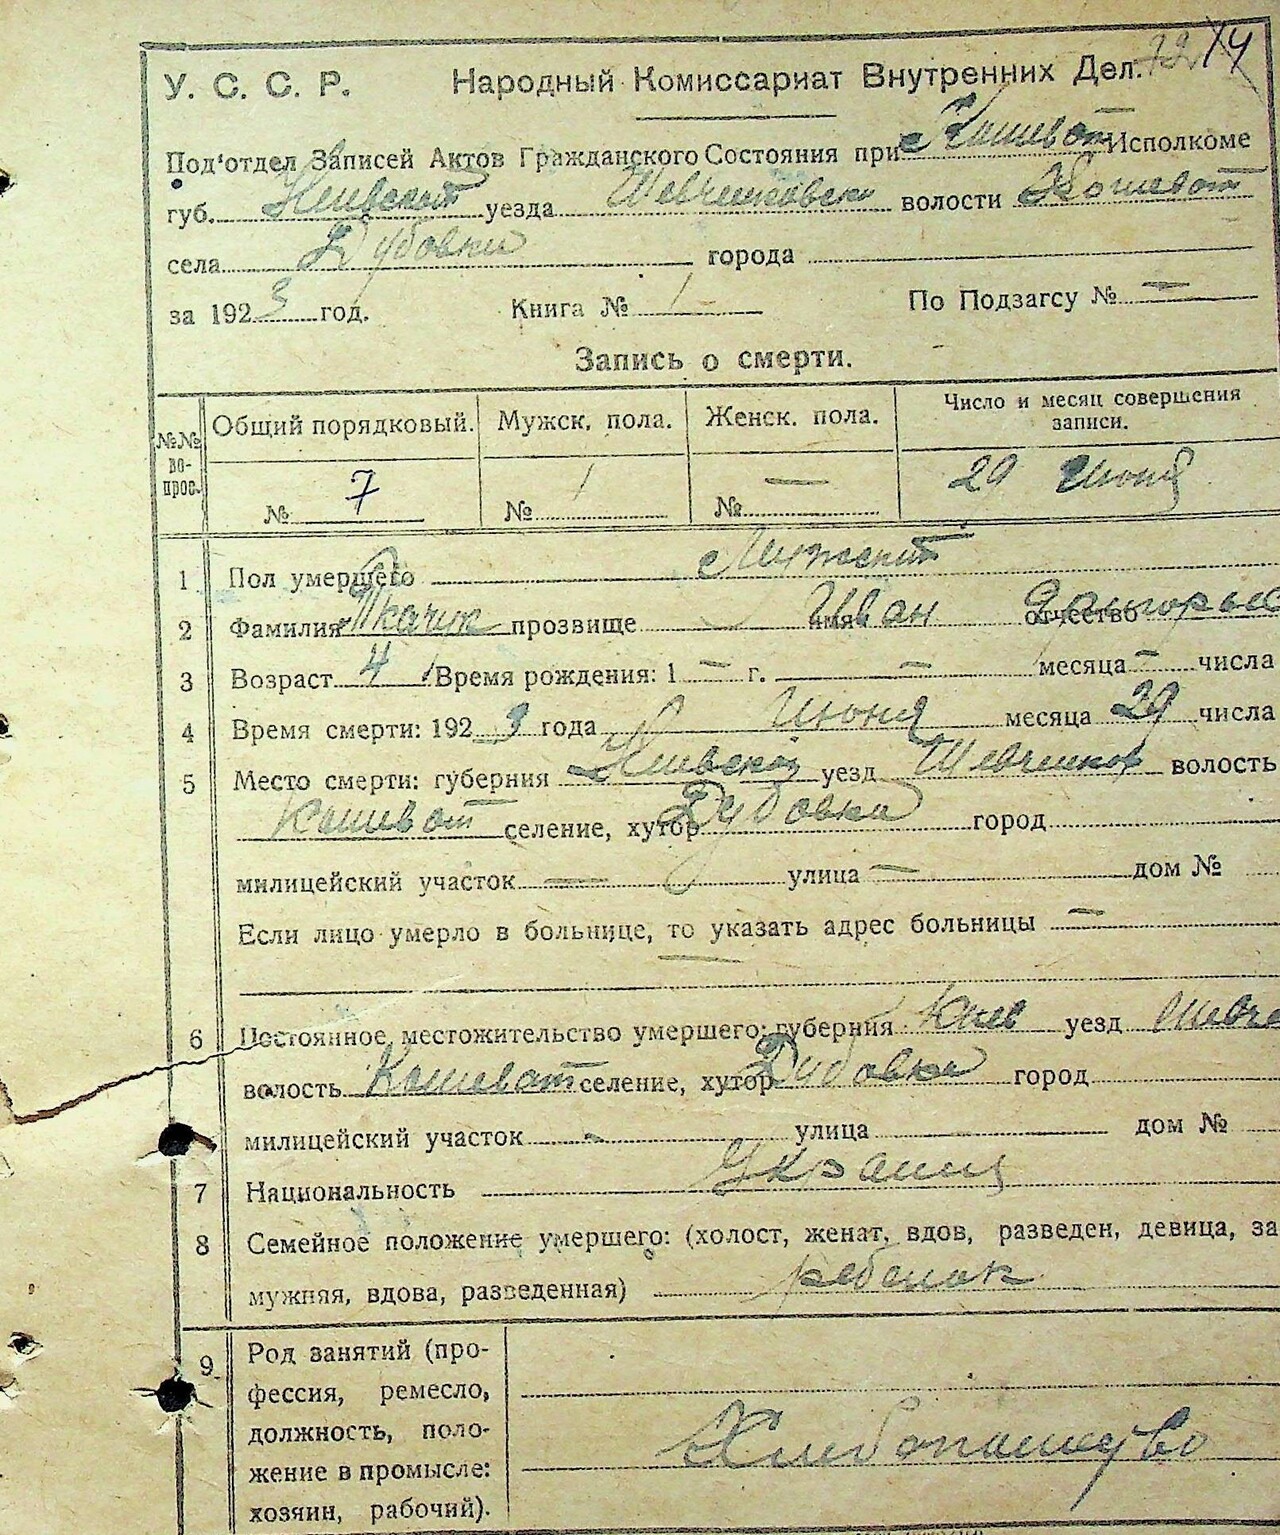 У. С. С. Р. Народный Комиссариат Внутренних Дел. 72 74
Под'отдел Записей Актов Гражданского Состояния при Кошеват Исполкоме
губ. Киевской уезда Шевченковск волости Кошеват
села Дубовки города
за 1923 год. Книга № 1 По Подзагсу № —
Запись о смерти.
№№ вопрос. Общий порядковый. Мужск. пола. Женск. пола. Число и месяц совершения записи.
№ 7 № 1 № — 29 Июня
1 Пол умершего Мужской
2 Фамилия Ткачук прозвище — имя Иван отчество
3 Возраст 4 Время рождения: 1 — г. — месяца — числа
4 Время смерти: 1923 года Июня месяца 29 числа
5 Место смерти: губерния Киевской уезд Шевченков волость
Кошеват селение, хутор Дубовка город
милицейский участок — улица — дом №
Если лицо умерло в больнице, то указать адрес больницы —
—
6 Постоянное местожительство умершего: губерния Киев уезд Шевче
волость Кошеват селение, хутор Дубовка город
милицейский участок - улица дом №
7 Национальность Украинц
8 Семейное положение умершего: (холост, женат, вдов, разведен, девица, за
мужняя, вдова, разведенная) ребенок
9 Род занятий (про-
фессия, ремесло,
должность, поло-
жение в промысле:
хозяин, рабочий).
Хлибопашество